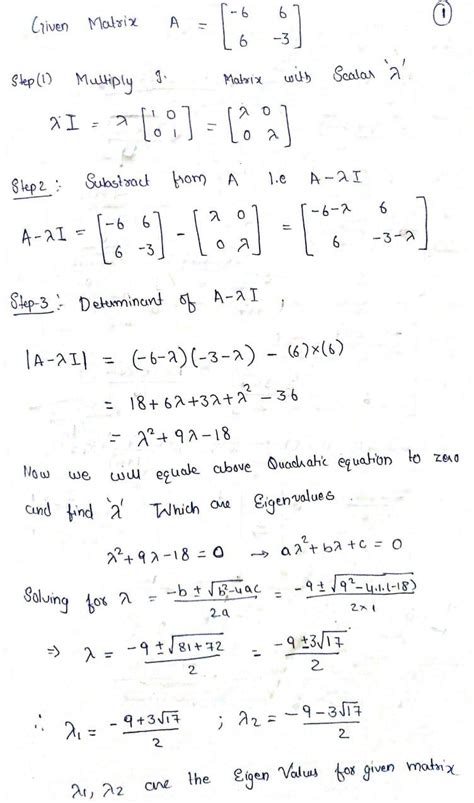 Given Matrix A = [-6 6; 6 -3] ①
Step(1) Multiply I. Matrix with Scalar 'λ'
λI = λ [1 0; 0 1] = [λ 0; 0 λ]
Step2:- Substract from A I.e A-λI
A-λI = [-6 6; 6 -3] - [λ 0; 0 λ] = [-6-λ 6; 6 -3-λ]
Step-3:- Determinant of A-λI ;
|A-λI| = (-6-λ)(-3-λ) - (6)×(6)
= 18+6λ+3λ+λ²-36
= λ²+9λ-18
Now we will equate above Quadratic equation to zero
and find 'λ' Which are Eigenvalues.
λ²+9λ-18=0 → aλ²+bλ+c=0
Solving for λ = (-b±√(b²-4ac))/2a = (-9±√(9²-4.1.(-18)))/2×1
⇒ λ = (-9±√(81+72))/2 = (-9±3√17)/2
∴ λ₁ = (-9+3√17)/2 ; λ₂ = (-9-3√17)/2
λ₁, λ₂ are the Eigen Values for given matrix